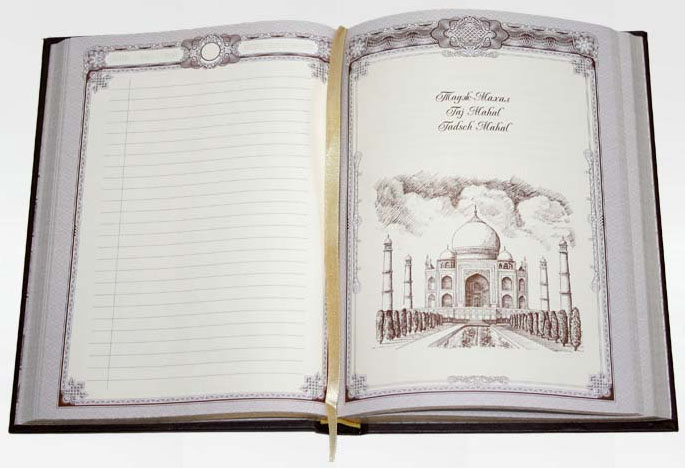 Тадж-Махал
Taj Mahal
Tadsch Mahal